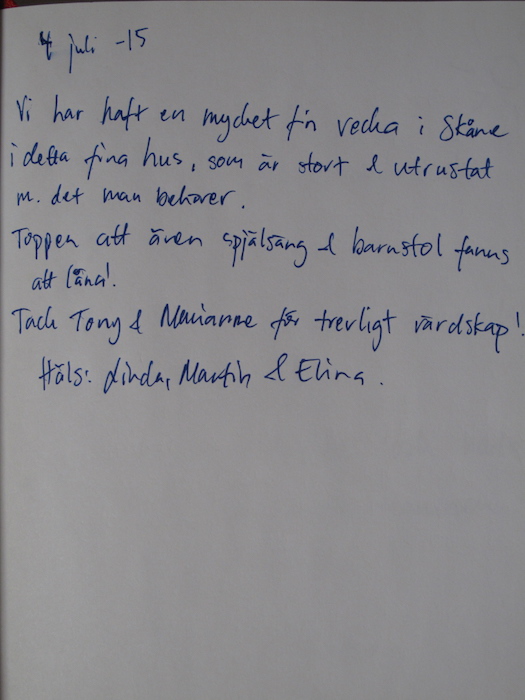 4 juli -15
Vi har haft en mycket fin vecka i Skåne
i detta fina hus, som är stort & utrustat
m. det man behöver.
Toppen att även spjälsäng & barnstol fanns
att låna!
Tack Tony & Marianne för trevligt värdskap!
Häls: Linda, Martin & Elina.